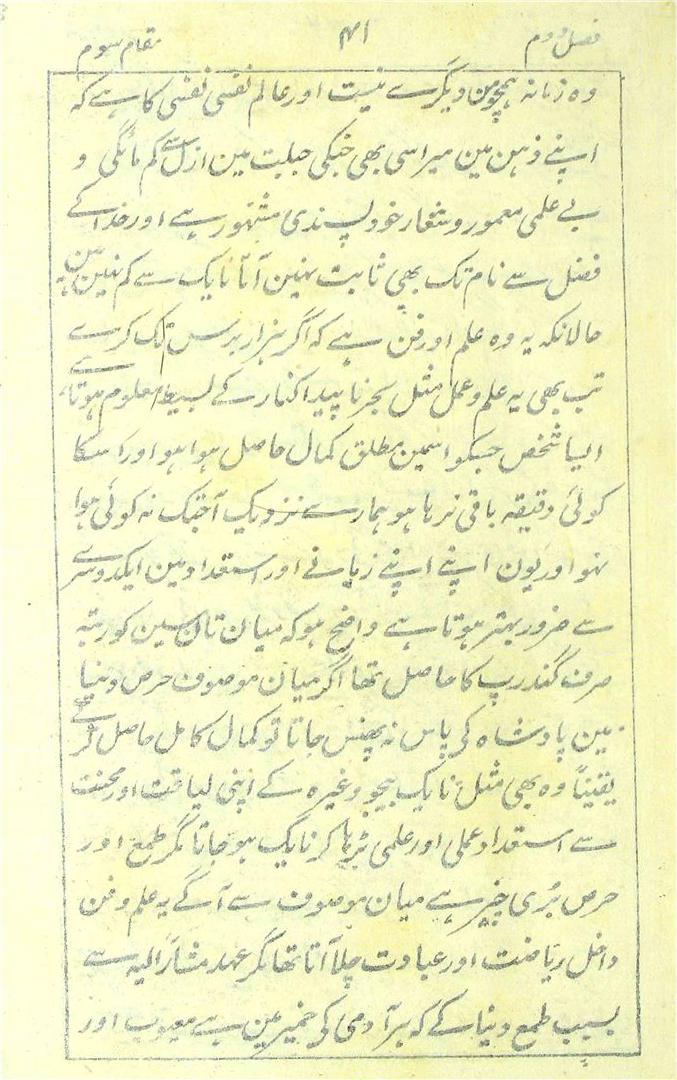 فصل دوم ۴۱ مقام سوم
وہ زمانہ ہمچو من دیگرے نیست اور عالم نفسی نفسی کا ہے کہ
اپنے ذہن مین میراسی بھی جنکی جبلت مین ازل سے کم مائگی و
بے علمی معمور و شعار خود پسندی مشہور ہے اور خدا کے
فضل سے نام تک بھی ثابت نہین آتا نایک سے کم نہین ہین
حالانکہ یہ وہ علم اور فن ہے کہ اگر ہزار برس تک کرے
تب بھی یہ علم و عمل مثل بحر ناپیدا کنار کے بسیط معلوم ہوتا ہے
ایسا شخص جسکو اسمین مطلق کمال حاصل ہوا ہو اور اسکا
کوئی دقیقہ باقی نرہا ہو ہمارے نزدیک آجتک نہ کوئی ہوا
نہو اور یون اپنے اپنے زمانے اور استعداد مین ایکدوسرے
سے ضرور بہتر ہوتا ہے واضح ہو کہ میان تان سین کو رتبہ
صرف گندرپ کا حاصل تھا اگر میان موصوف حرص دنیا
مین پادشاہ کی پاس نہ پھنس جاتا تو کمال کامل حاصل کرتے
یقیناً وہ بھی مثل نایک بیجو وغیرہ کے اپنی لیاقت اور محنت
سے استعداد عملی اور علمی بڑہا کر نایک ہو جاتا مگر طمع اور
حرص بُری چیز ہے میان موصوف سے آگے یہ علم و فن
داخل ریاضت اور عبادت چلا آتا تھا مگر عہد مشارٌالیہ سے
بسبب طمع دنیا کے کہ ہر آدمی کی خمیر مین ہے معیوب اور